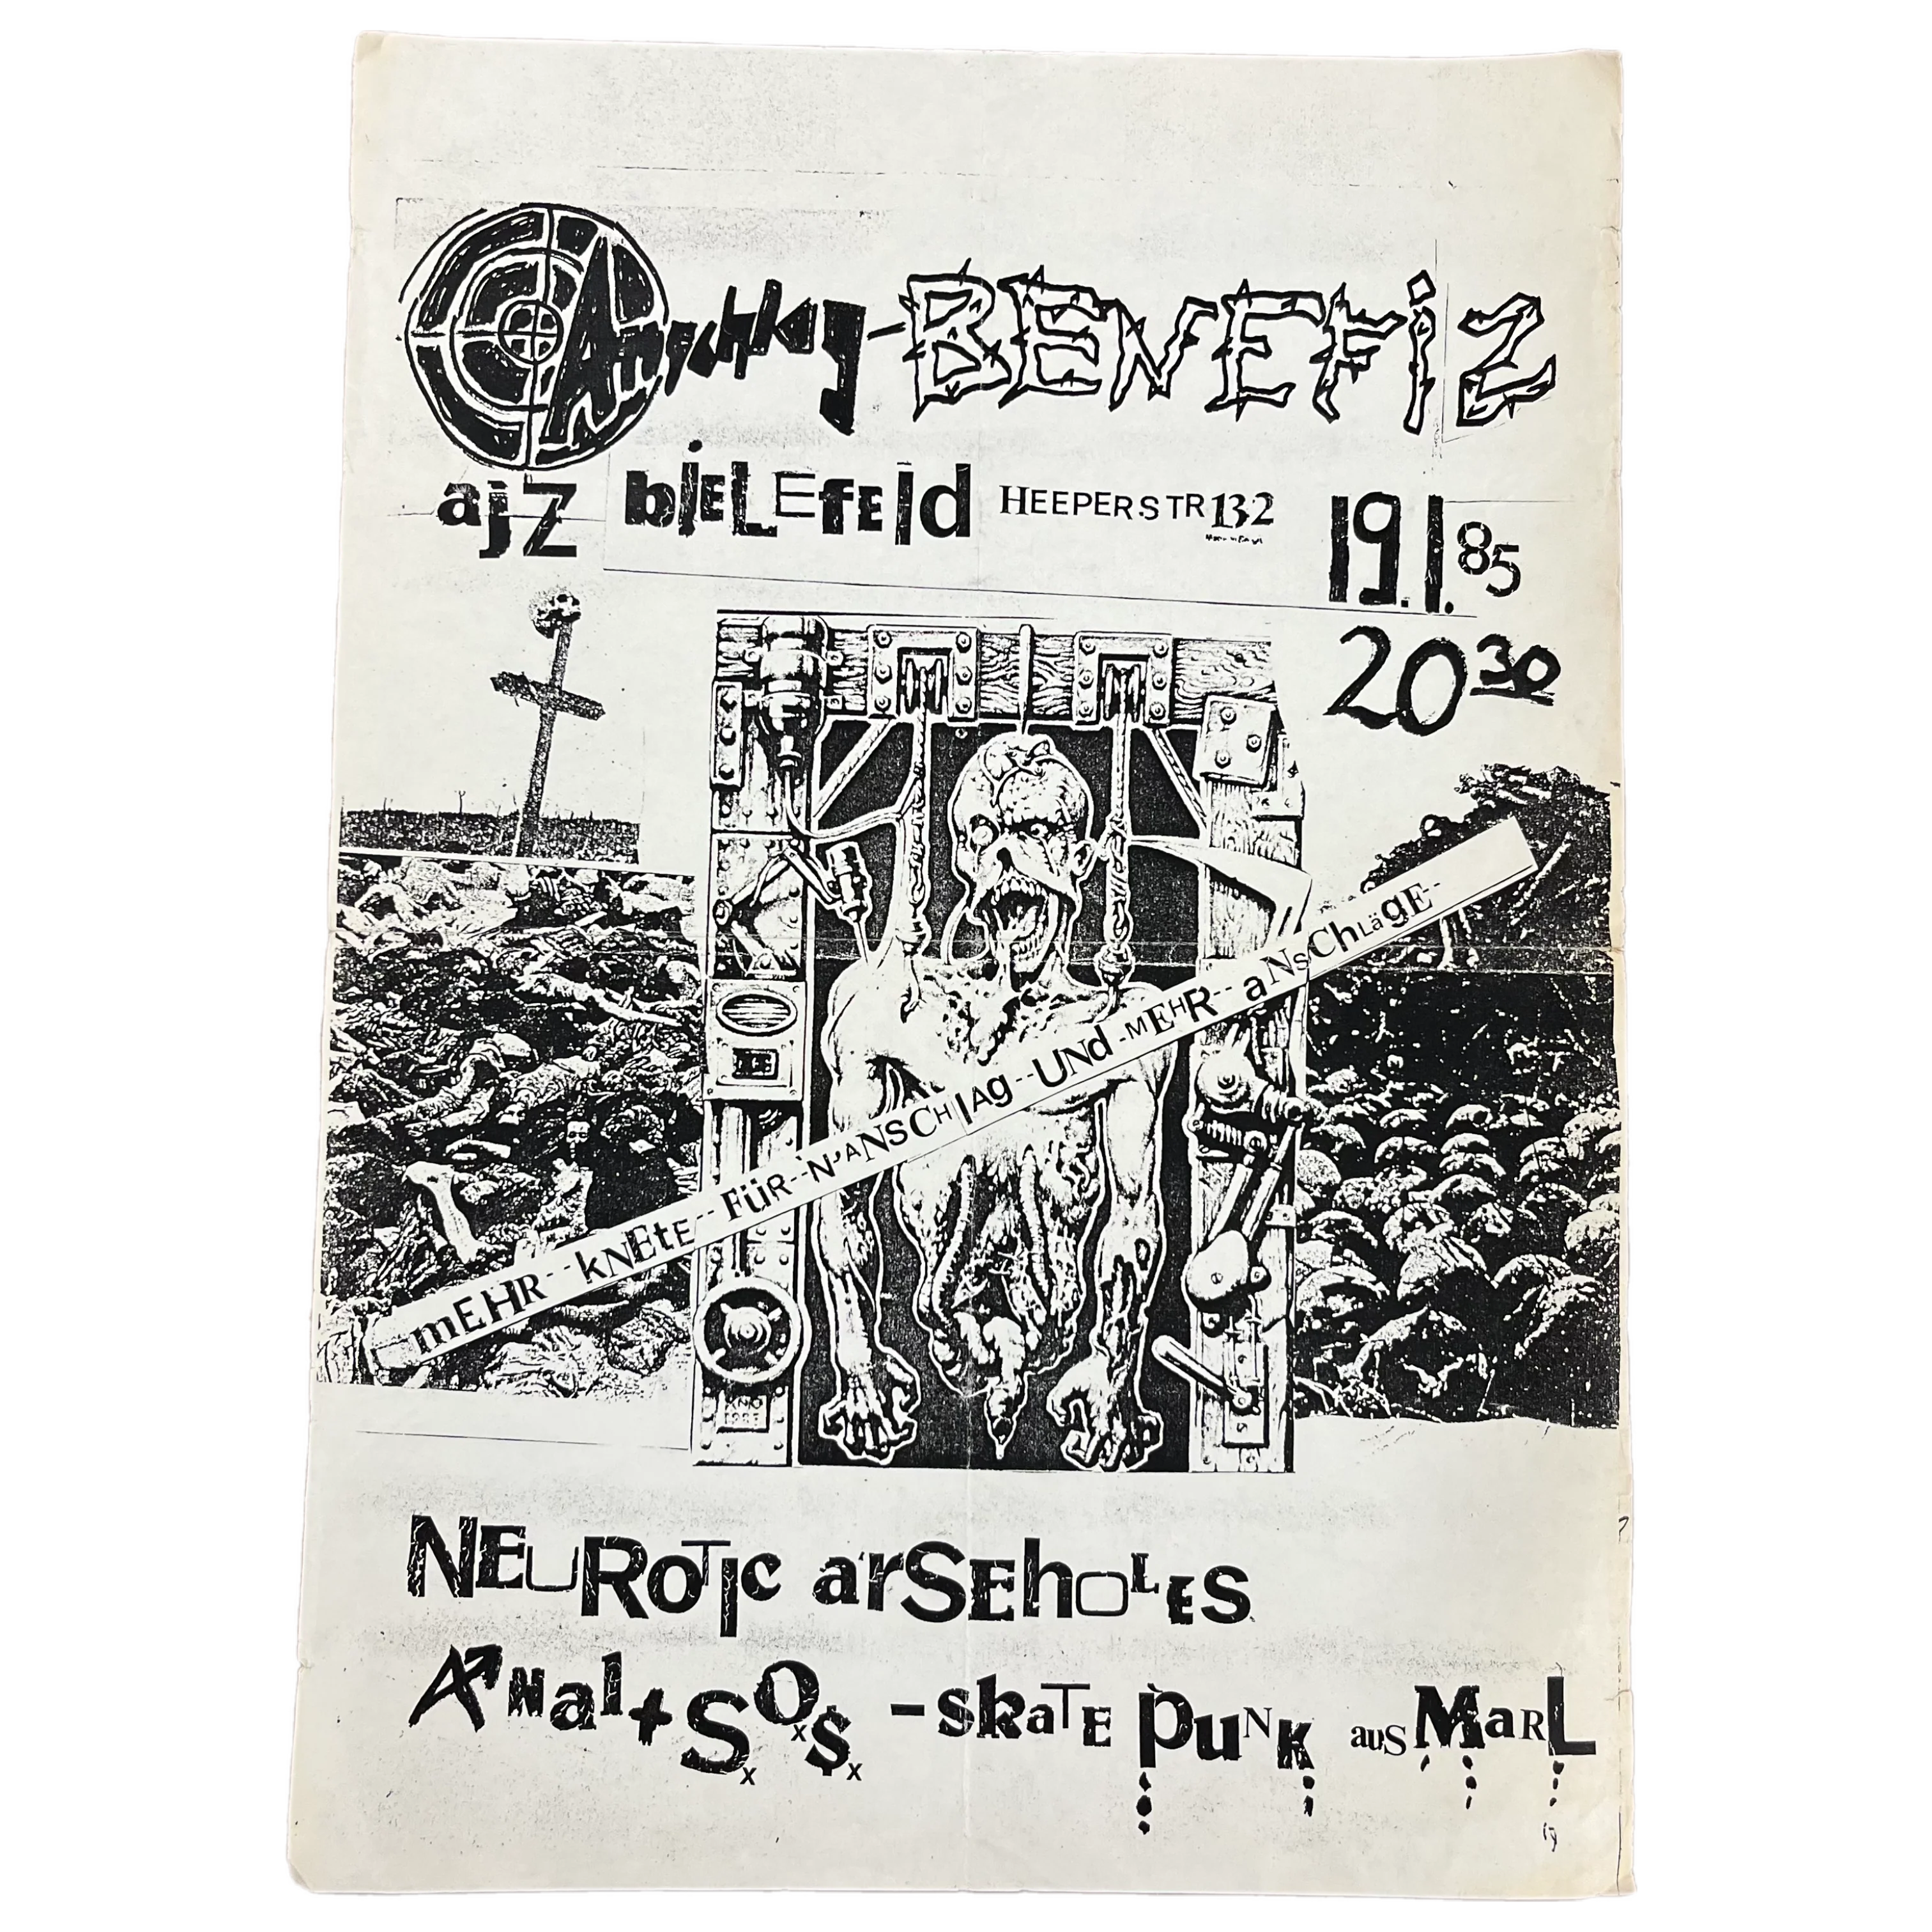 Anschlag-BENEFiZ
ajZ biELEfEld HEEPERSTR 132 19.1.85
20 30
mEHR--kNEtE--FüR--'N'ANSCHlAg--UNd-MEHR--aNSChLägE--
NEURoTIc arSEhOLES
ANal+SOS -skaTE punk aus MaRL